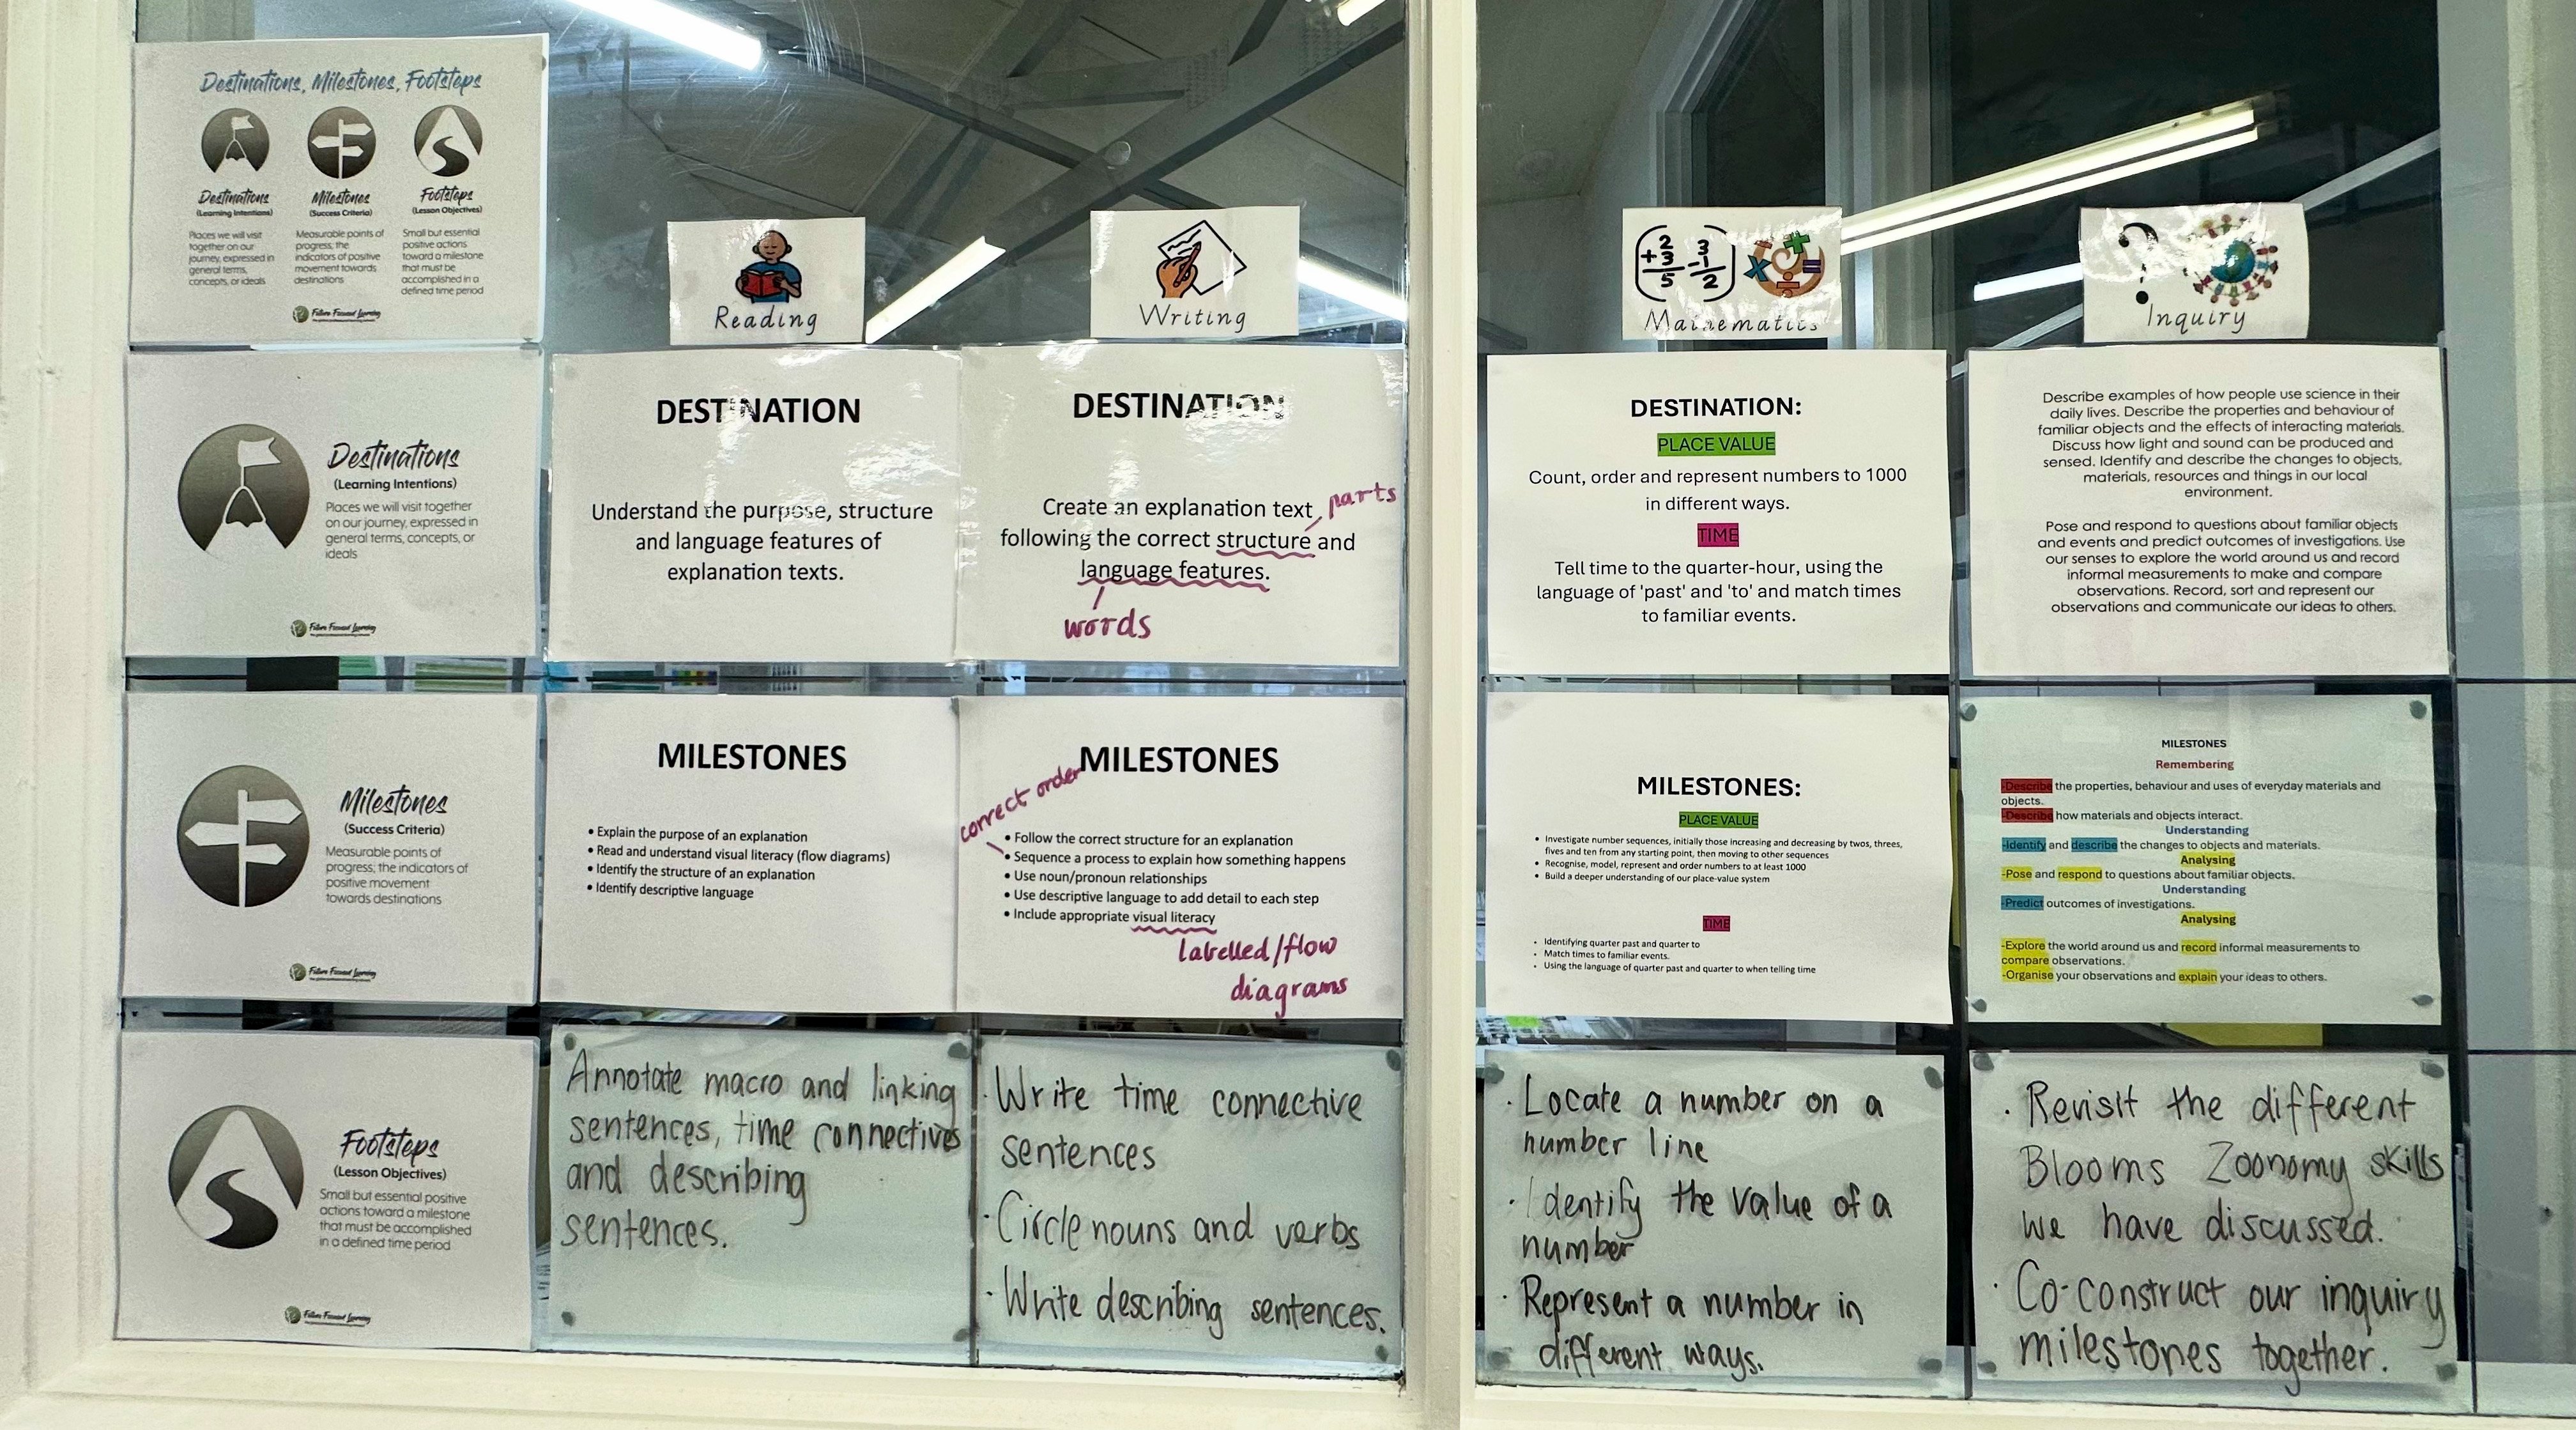 Destinations, Milestones, Footsteps
Destinations
(Learning Intentions)
Places we will visit
together on our
journey, expressed in
general terms,
concepts, or ideals
Milestones
(Success Criteria)
Measurable points of
progress; the
indicators of positive
movement towards
destinations
Footsteps
(Lesson Objectives)
Small but essential
positive actions
toward a milestone
that must be
accomplished in a
defined time period
Future Focused Learning
Reading
Writing
2
+3
5
3
-1
2
Mathematics
?
Inquiry
Destinations
(Learning Intentions)
Places we will visit together
on our journey, expressed in
general terms, concepts, or
ideals
Future Focused Learning
DESTINATION
Understand the purpose, structure
and language features of
explanation texts.
DESTINATION
Create an explanation text
parts
following the correct structure and
language features.
words
DESTINATION:
PLACE VALUE
Count, order and represent numbers to 1000
in different ways.
TIME
Tell time to the quarter-hour, using the
language of 'past' and 'to' and match times
to familiar events.
Describe examples of how people use science in their
daily lives. Describe the properties and behaviour of
familiar objects and the effects of interacting materials.
Discuss how light and sound can be produced and
sensed. Identify and describe the changes to objects,
materials, resources and things in our local
environment.
Pose and respond to questions about familiar objects
and events and predict outcomes of investigations. Use
our senses to explore the world around us and record
informal measurements to make and compare
observations. Record, sort and represent our
observations and communicate our ideas to others.
Milestones
(Success Criteria)
Measurable points of
progress; the indicators of
positive movement
towards destinations
Future Focused Learning
MILESTONES
• Explain the purpose of an explanation
• Read and understand visual literacy (flow diagrams)
• Identify the structure of an explanation
• Identify descriptive language
MILESTONES
correct order
• Follow the correct structure for an explanation
• Sequence a process to explain how something happens
• Use noun/pronoun relationships
• Use descriptive language to add detail to each step
• Include appropriate visual literacy
labelled/flow
diagrams
MILESTONES:
PLACE VALUE
• Investigate number sequences, initially those increasing and decreasing by twos, threes,
fives and ten from any starting point, then moving to other sequences
• Recognise, model, represent and order numbers to at least 1000
• Build a deeper understanding of our place-value system
TIME
• Identifying quarter past and quarter to
• Match times to familiar events.
• Using the language of quarter past and quarter to when telling time
MILESTONES
Remembering
-Describe the properties, behaviour and uses of everyday materials and
objects.
-Describe how materials and objects interact.
Understanding
-Identify and describe the changes to objects and materials.
Analysing
-Pose and respond to questions about familiar objects.
Understanding
-Predict outcomes of investigations.
Analysing
-Explore the world around us and record informal measurements to
compare observations.
-Organise your observations and explain your ideas to others.
Footsteps
(Lesson Objectives)
Small but essential positive
actions toward a milestone
that must be accomplished
in a defined time period
Future Focused Learning
Annotate macro and linking
sentences, time connectives
and describing
sentences.
· Write time connective
sentences
· Circle nouns and verbs
· Write describing sentences.
· Locate a number on a
number line
· Identify the value of a
number
· Represent a number in
different ways.
· Revisit the different
Blooms Zoonomy skills
we have discussed.
· Co-construct our inquiry
milestones together.